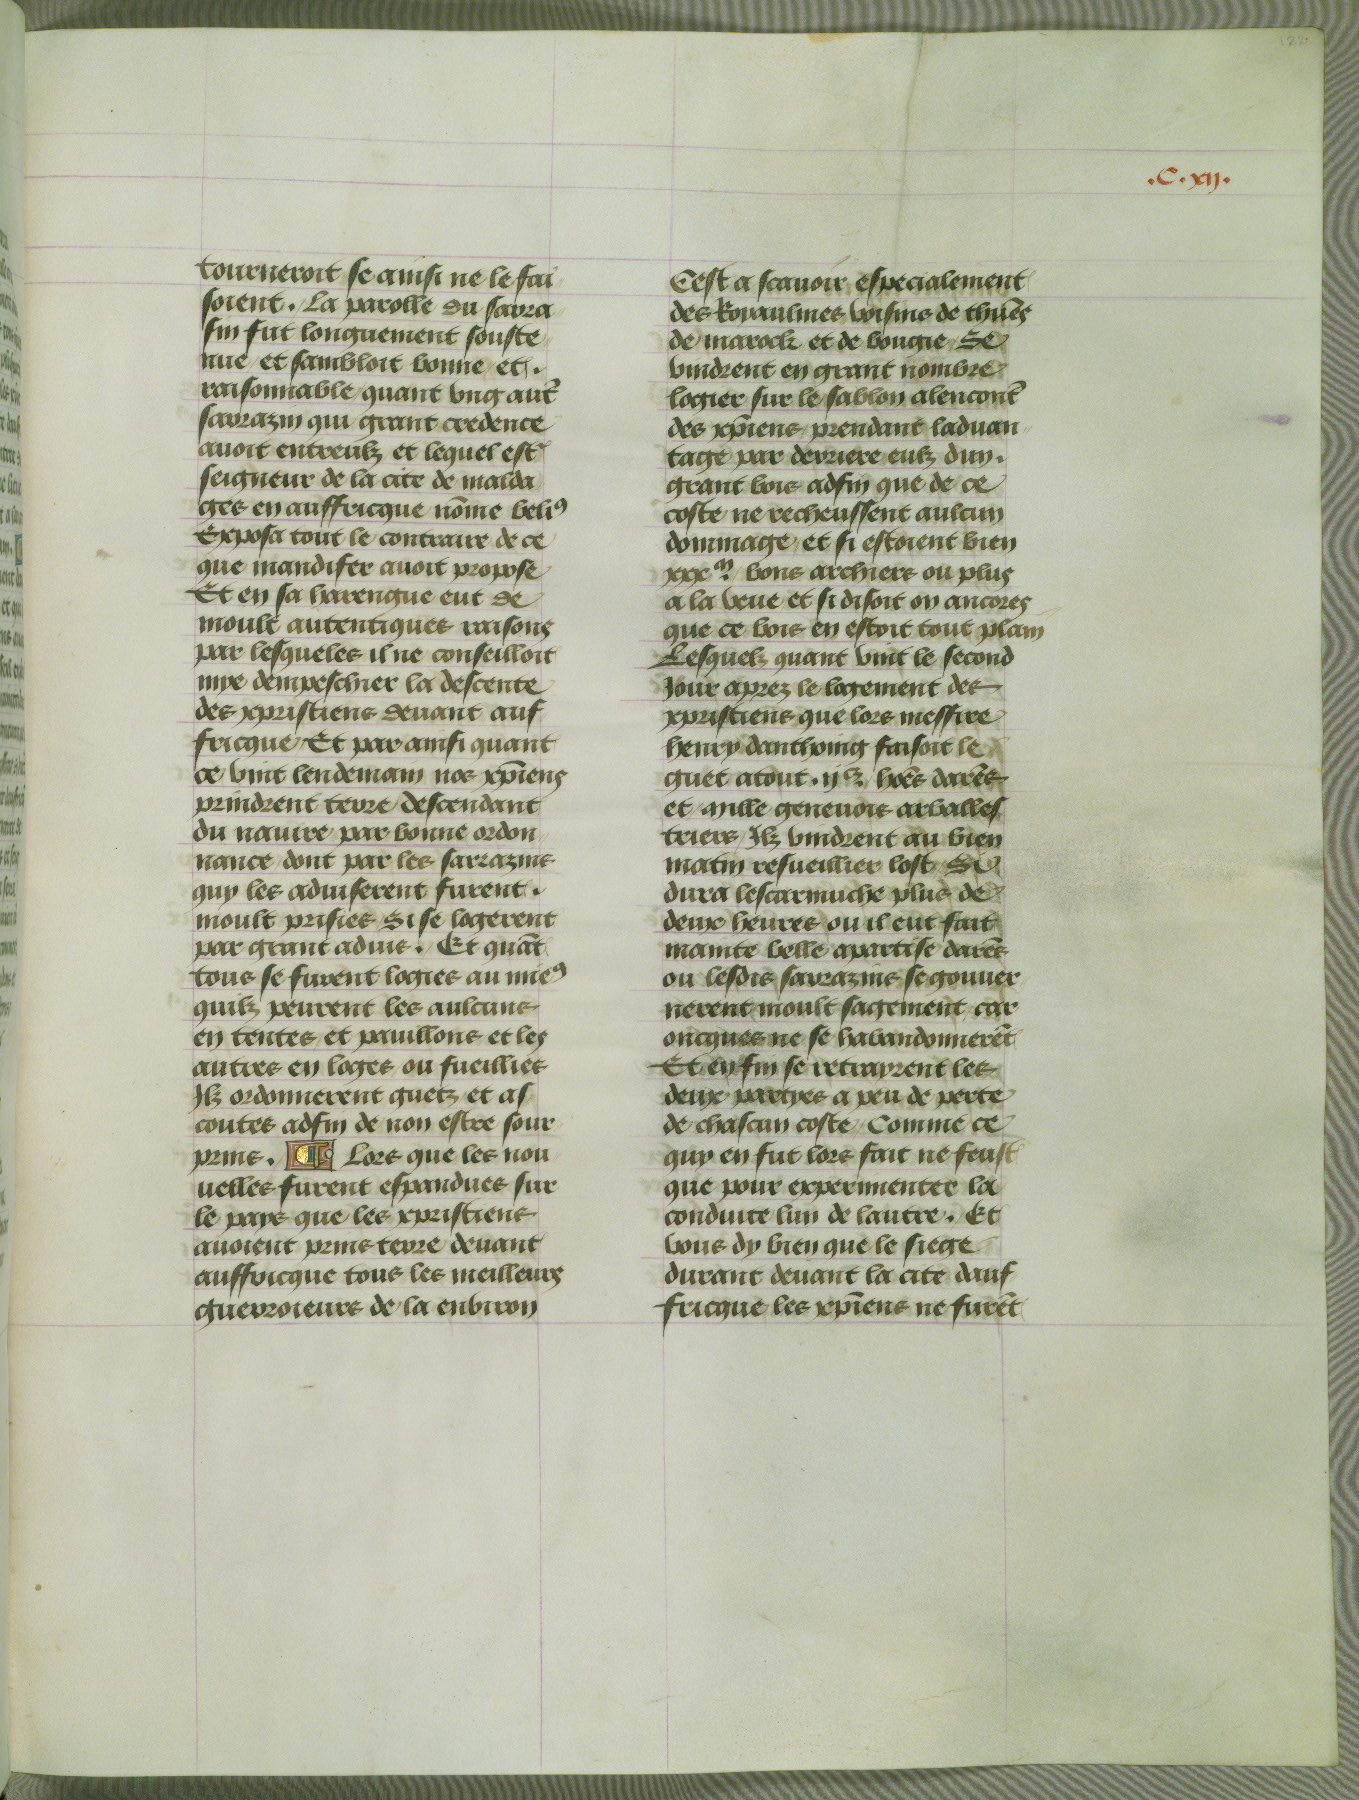 122
.C.xij.
tourneroit se ainsi ne le fai
soient. La parolle du sarra
sin fut longuement souste
nue et sambloit bonne et.
raisonnable quant vng autr̄
sarrazin qui grant credence
auoit entreulz et lequel est
seigneur de la cite de malda
ges en auffricque nōme beliꝰ
Exposa tout le contraire de ce
que mandifer auoit propose
Et en sa harengue eut de
moult autentiques raisons
par lesqueles il ne conseilloit
mye dempeschier la descente
des xpristiens deuant auf
fricque Et par ainsi quant
ce vint lendemain nos xp̄iens
prindrent terre descendant
du nauire par bonne ordon
nance dont par les sarrazins
quy les aduiserent furent.
moult prisies Si se logerent
par grant aduis. Et quāt
tous se furent logies au mieꝰ
quilz peurent les aulcuns
en tentes et pauillons et les
autres en loges ou fueillies
Ilz ordonnerent guetz et as
coutes adfin de non estre sour
prins. Lors que les nou
uelles furent espandues sur
le pays que les xpristiens
auoient prins terre deuant
auffricque tous les meilleurs
guerroieurs de la enuiron
Cest a scauoir especialement
des Royaulmes voisins de thun̄es
de marock et de bougie Se
vindrent en grant nombre
logier sur le sablon alencontr̄
des xp̄iens prendant laduan
tage par derriere eulz dun.
grant bois adfin que de ce
coste ne recheussent aulcun
dommage et si estoient bien
xxx.ᵐ bons archiers ou plus
a la veue et si disoit on ancores
que ce bois en estoit tout plain
Lesquelz quant vint le second
Jour aprez le logement des
xpristiens que lors messire
henry danthoing faisoit le
guet atout .ijᶜ. hoēs darēs
et mille geneuois arballes
triers Ilz vindrent au bien
matin resueillier lost Si
dura lescarmuche plus de
deux heures ou il eut fait
mainte belle apartise darēs
ou lesdis sarrazins se gouuer
nerent moult sagement car
oncques ne se habandonnerēt
Et en fin se retrayrent les
deux partyes a peu de perte
de chascun coste Comme ce
quy en fut lors fait ne feust
que pour experimenter la
conduite lun de lautre. Et
vous dy bien que le siege
durant deuant la cite dauf
fricque les xp̄iens ne furēt